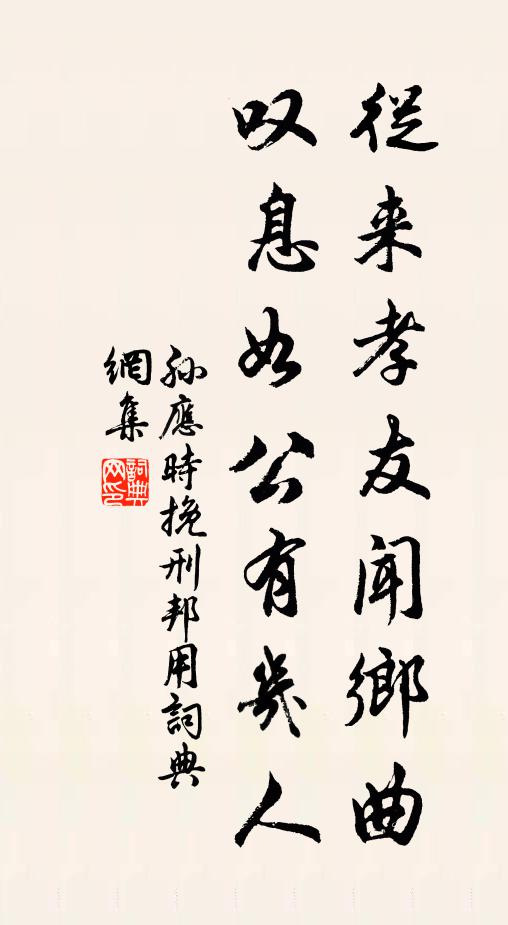 從来孝友聞鄉曲
叹息如公有幾人
孙應時挽刑邦用詞典
網集
詞典網印